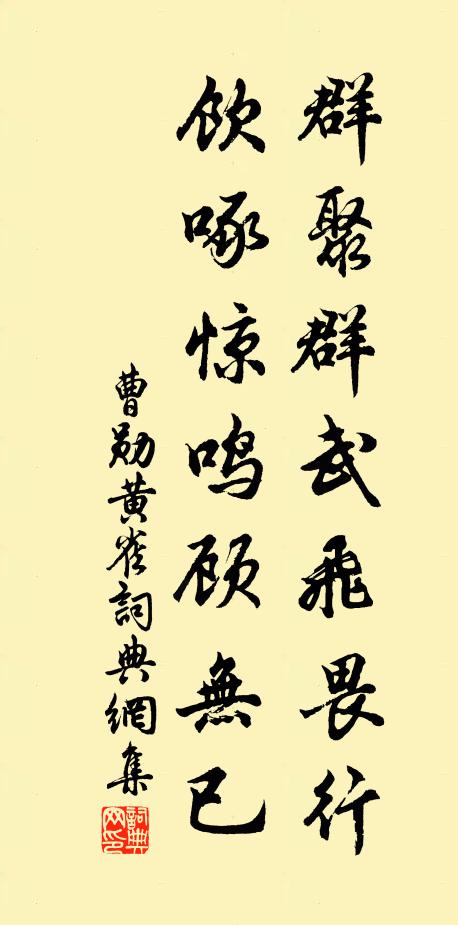 群聚群武飛畏行
飲啄惊鸣顾無已
曹勛黄雀詞典網集
詞典网印